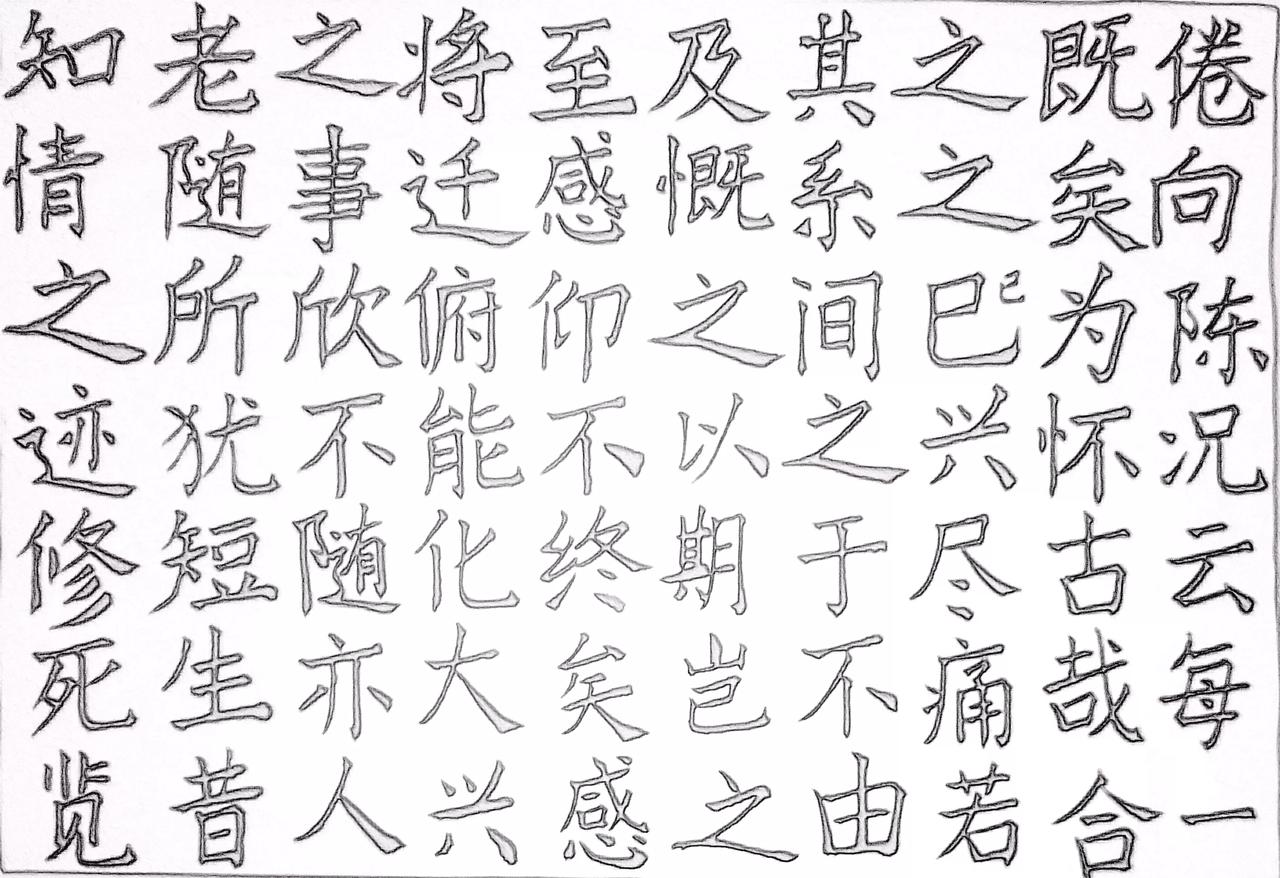 知老之将至及其之既倦
情随事迁感慨系之矣向
之所欣俯仰之间巳己为陈
迹犹不能不以之兴怀况
修短随化终期于尽古云
死生亦大矣岂不痛哉每
览昔人兴感之由若合一